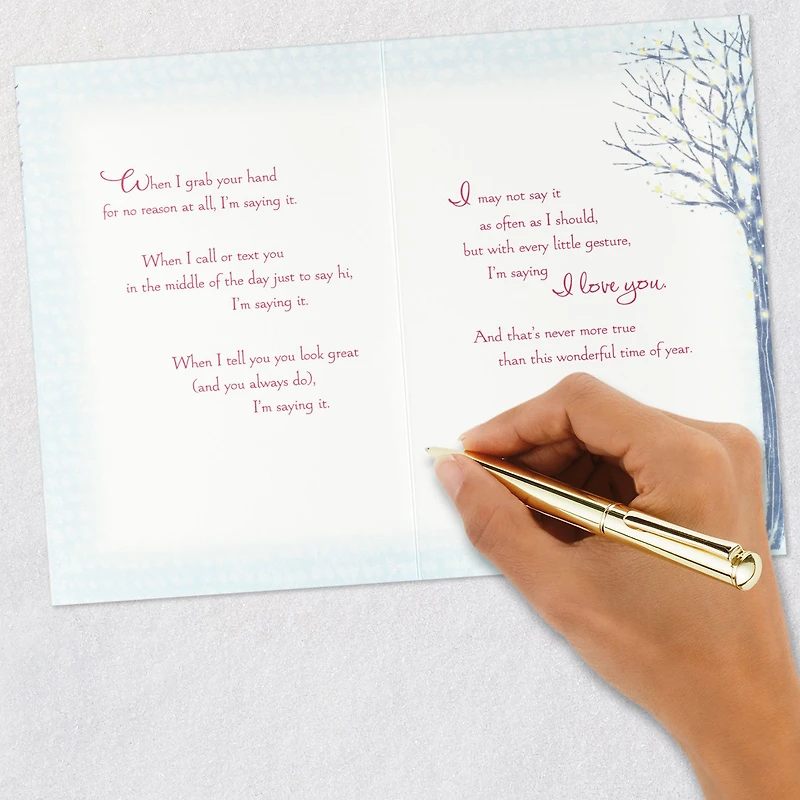 When I grab your hand
for no reason at all, I'm saying it.
When I call or text you
in the middle of the day just to say hi,
I'm saying it.
When I tell you you look great
(and you always do),
I'm saying it.
I may not say it
as often as I should,
but with every little gesture,
I'm saying
I love you.
And that's never more true
than this wonderful time of year.